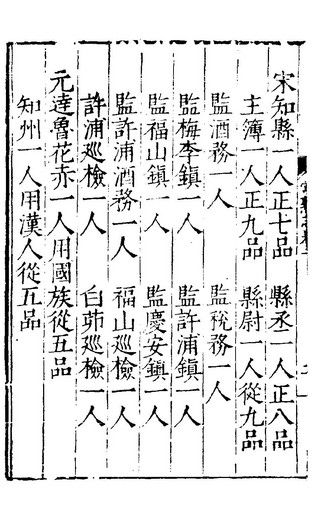 宋知縣一人正七品　縣丞一人正八品
主簿一人正九品　縣尉一人從九品
監酒務一人　監稅務一人
監梅李鎮一人　監許浦鎮一人
監福山鎮一人　監慶安鎮一人
監許浦酒務一人　福山巡檢一人
許浦巡檢一人　白茆巡檢一人
元達魯花赤一人用國族從五品
知州一人用漢人從五品